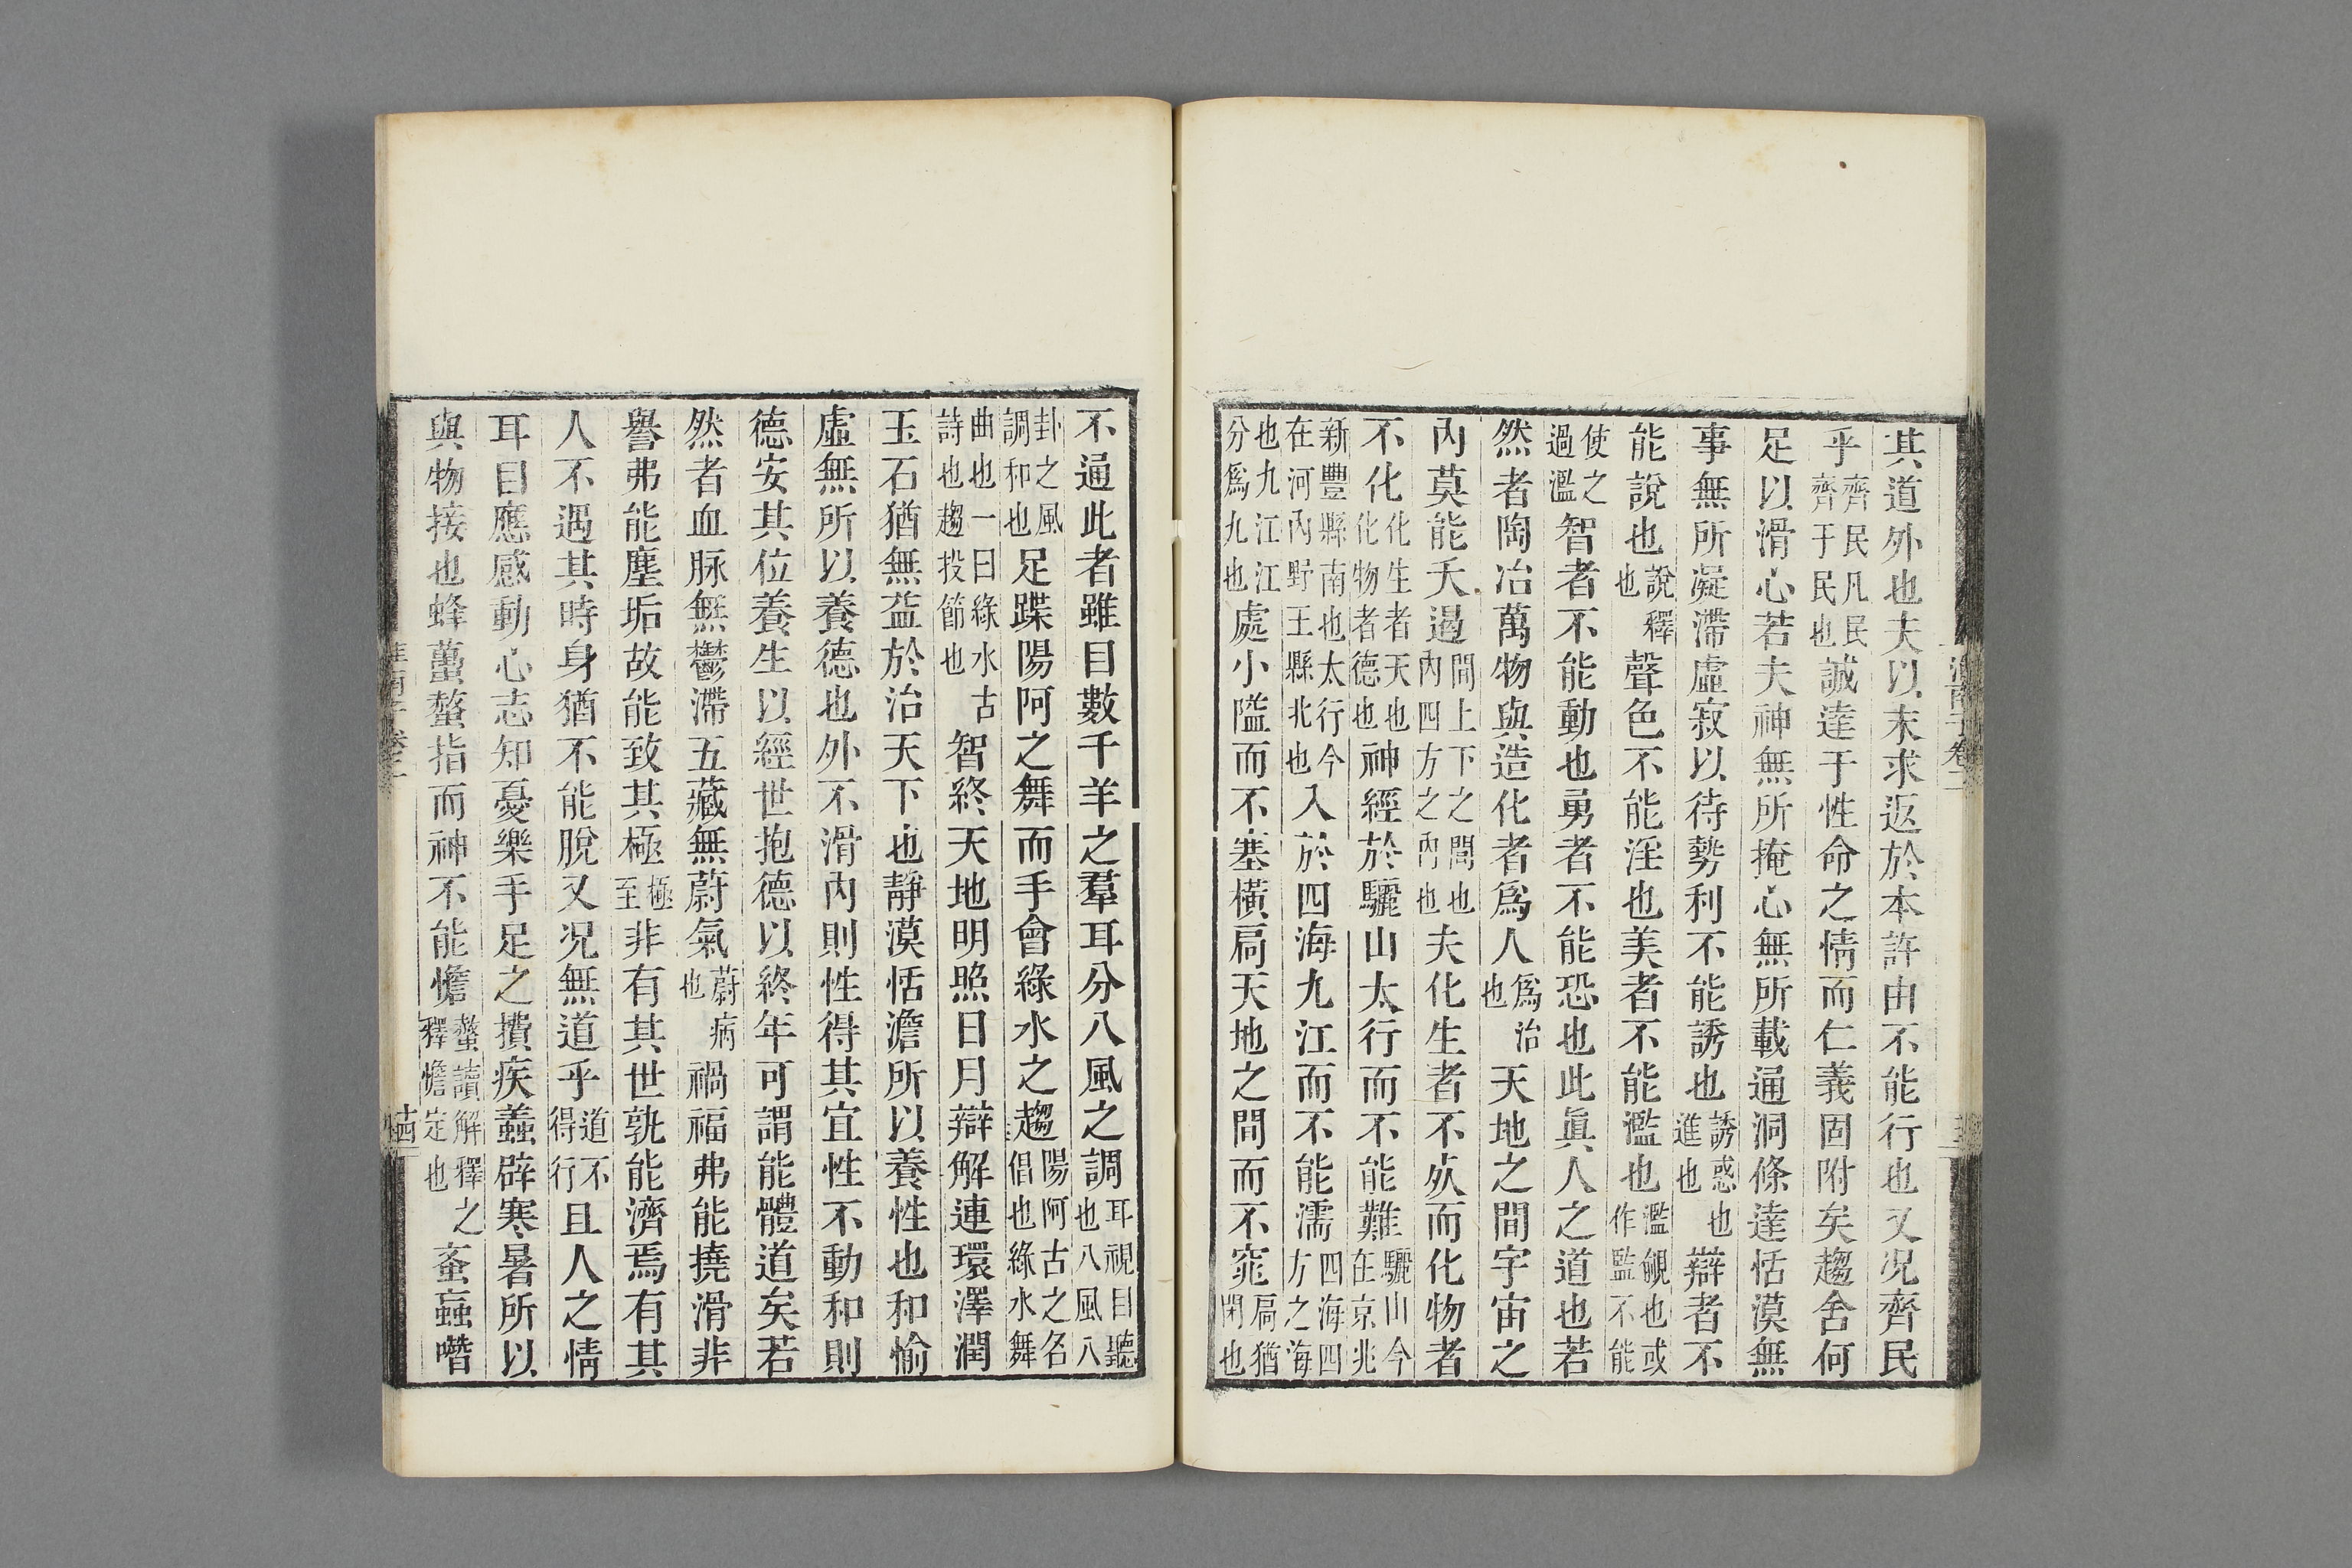 其道外也夫以末求返於本許由不能行也又况齊民
乎齊民凡民齊于民也誠達于性命之情而仁義固附矣趨舍何
足以滑心若夫神無所掩心無所載通洞條達恬漠無
事無所凝滯虛寂以待勢利不能誘也誘惑也進也辯者不
能說也說釋也聲色不能淫也美者不能濫也濫覦也或作監不能
使之過濫智者不能動也勇者不能恐也此眞人之道也若
然者陶冶萬物與造化者爲人爲治也天地之間宇宙之
內莫能夭遏間上下之間也內四方之內也夫化生者不㱙而化物者
不化化生者天也化物者德也神經於驪山太行而不能難驪山今在京兆
新豐縣南也太行今在河內野王縣北也入於四海九江而不能濡四海四方之海
也九江江分爲九也處小隘而不塞橫扃天地之間而不窕扃猶閉也
淮南子卷二
不通此者雖目數千羊之羣耳分八風之調耳視目聽也八風八
卦之風調和也足蹀陽阿之舞而手會綠水之趨陽阿古之名倡也綠水舞
曲也一曰綠水古詩也趨投節也智終天地明照日月辯解連環澤潤
玉石猶無益於治天下也靜漠恬澹所以養性也和愉
虛無所以養德也外不滑內則性得其宜性不動和則
德安其位養生以經世抱德以終年可謂能體道矣若
然者血脉無鬱滯五藏無蔚氣蔚病也禍福弗能撓滑非
譽弗能塵垢故能致其極極至非有其世孰能濟焉有其
人不遇其時身猶不能脫又况無道乎道不得行且人之情
耳目應感動心志知憂樂手足之㩌疾蠚辟寒暑所以
與物接也蜂蠆螫指而神不能憺螫讀解釋之釋憺定也蚉蝱噆
淮南子卷二
十四